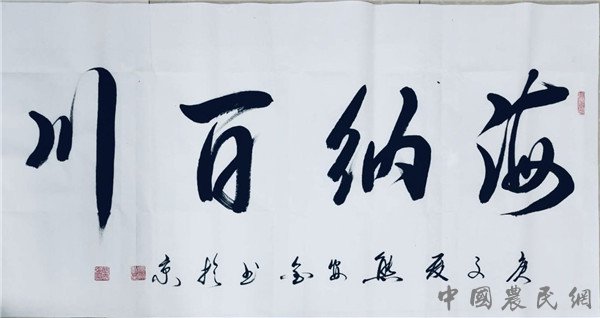 海纳百川
庚子夏熊安金书於京
中國農民網